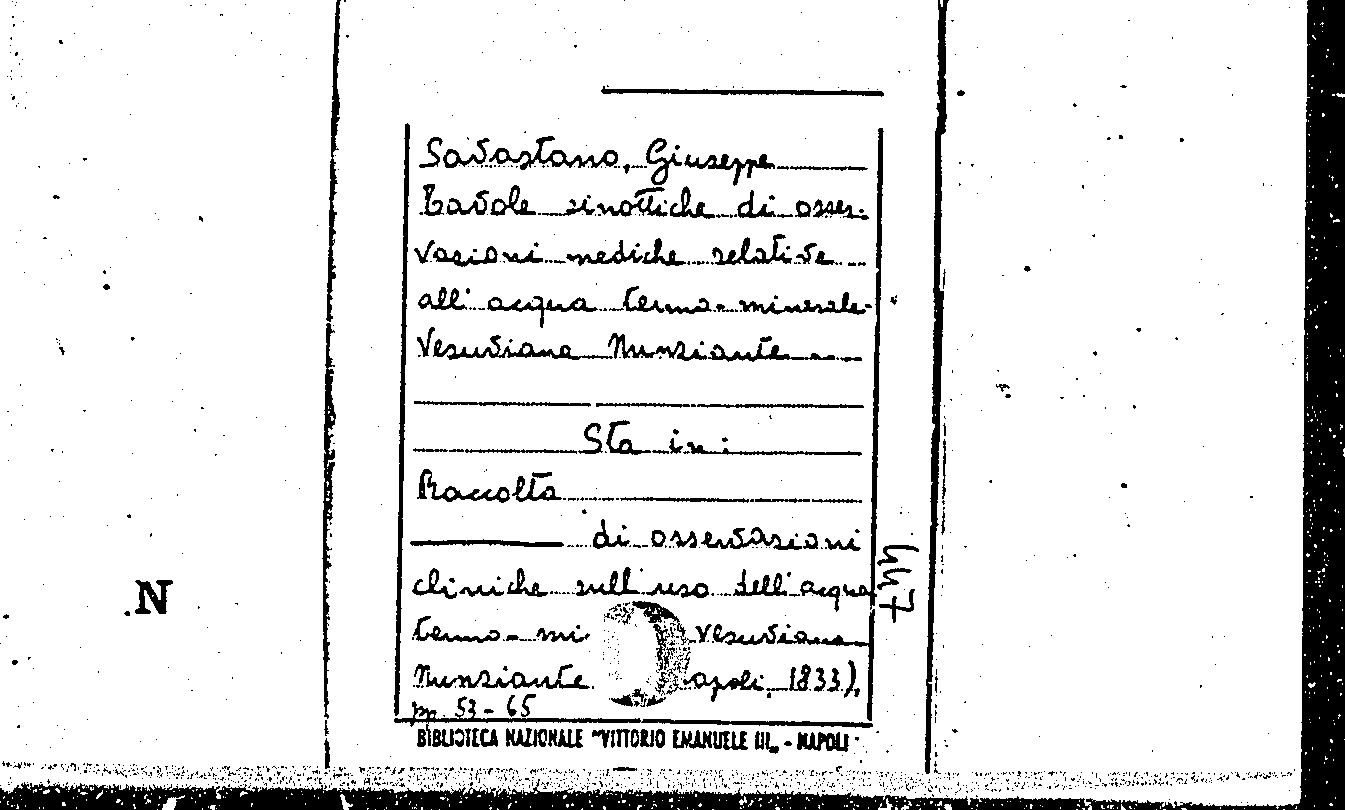 Savastano, Giuseppe
Tavole sinottiche di osser-
vazioni mediche relative
all'acqua termo-minerale-
Vesuviana Nunziante
Sta in:
Raccolta
di osservazioni
cliniche sull'uso dell'acqua
termo-mi vesuviana
Nunziante apoli, 1833),
pp. 53-65
BIBLIOTECA NAZIONALE "VITTORIO EMANUELE III„ - NAPOLI
447
N